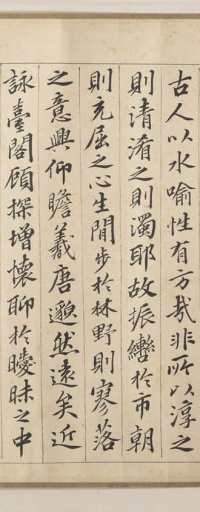 古人以水喻性有方哉非所以淳之
則清淆之則濁耶故振轡於市朝
則充屈之心生閒步於林野則寥落
之意興仰瞻羲唐邈然遠矣近
詠臺閣顧探增懷聊於曖昧之中